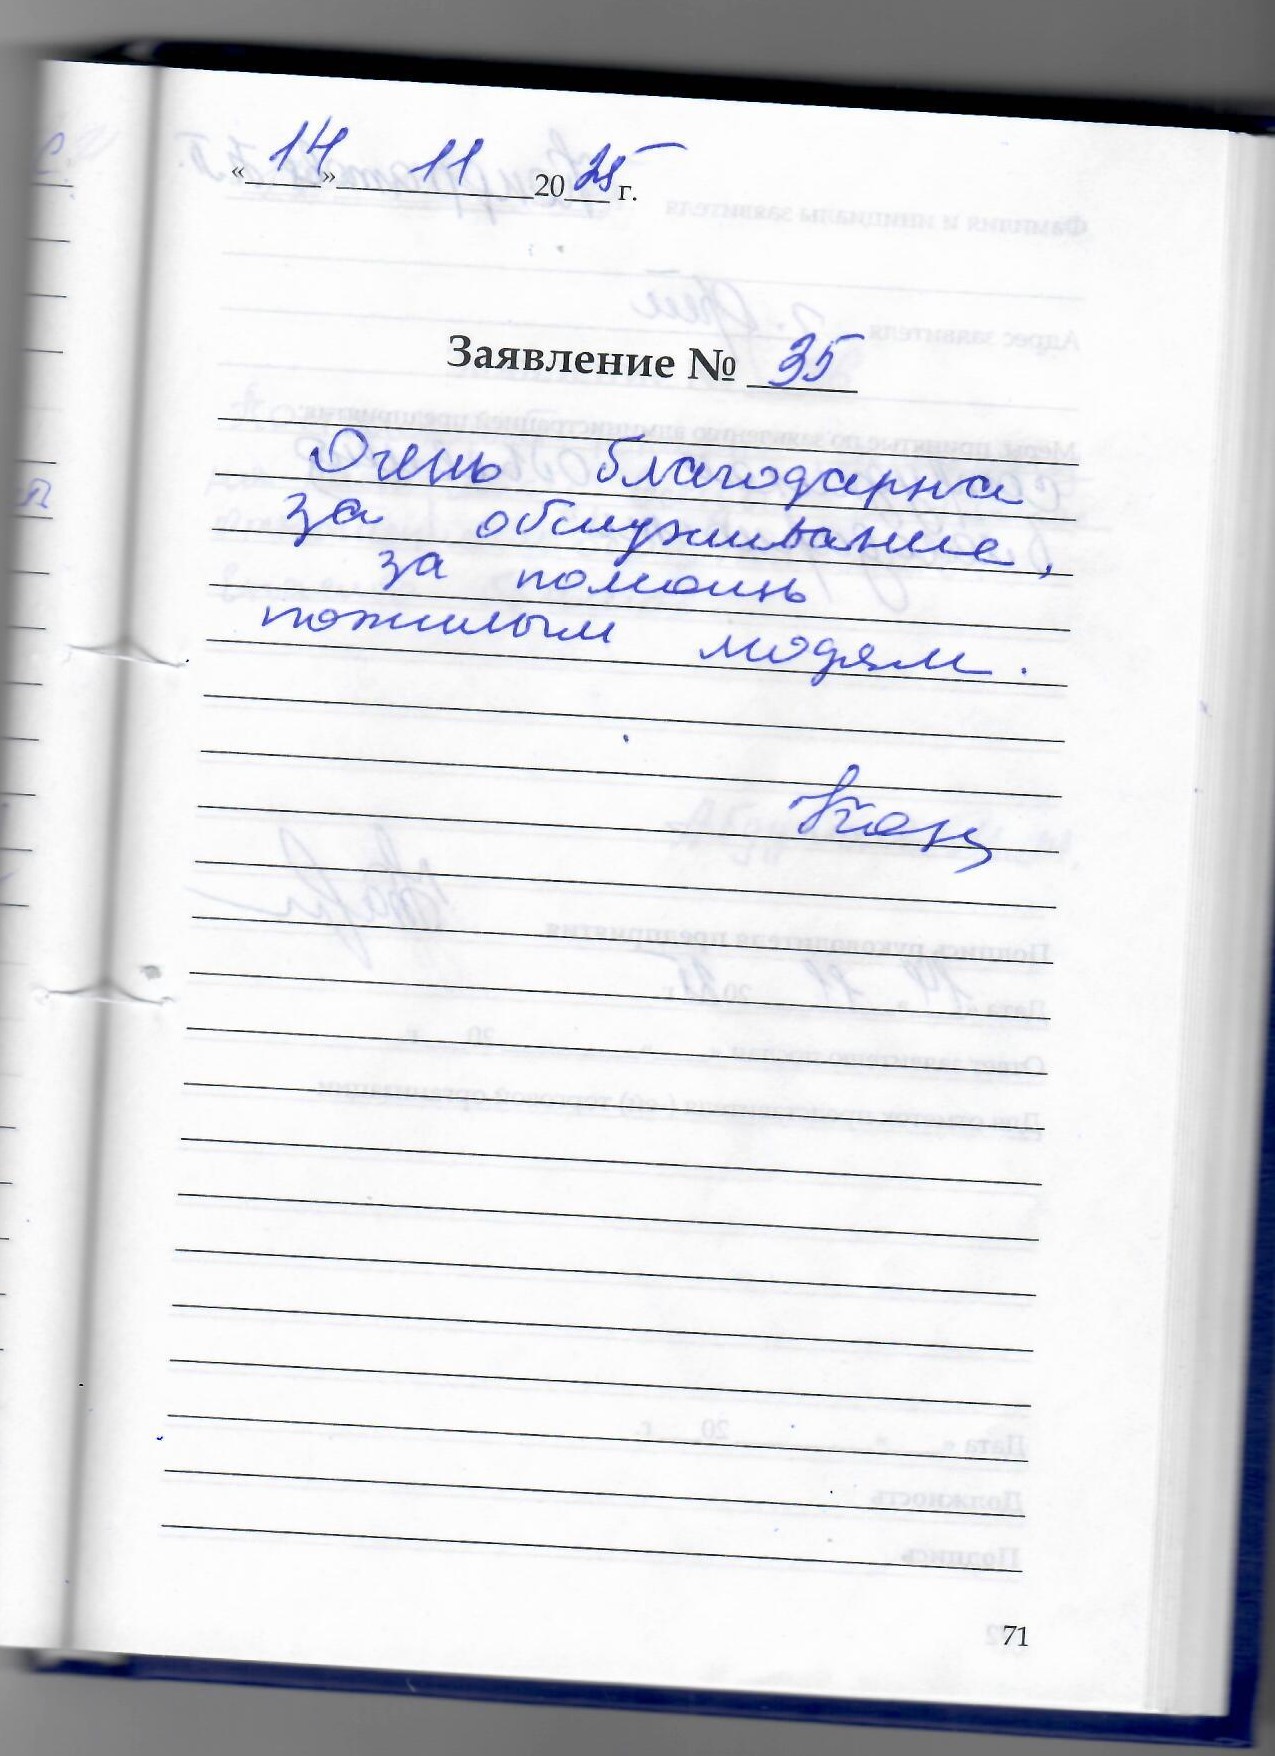 «14» 11 2025 г.
Заявление № 35
Очень благодарна
за обслуживание,
за помощь
пожилым людям.
71